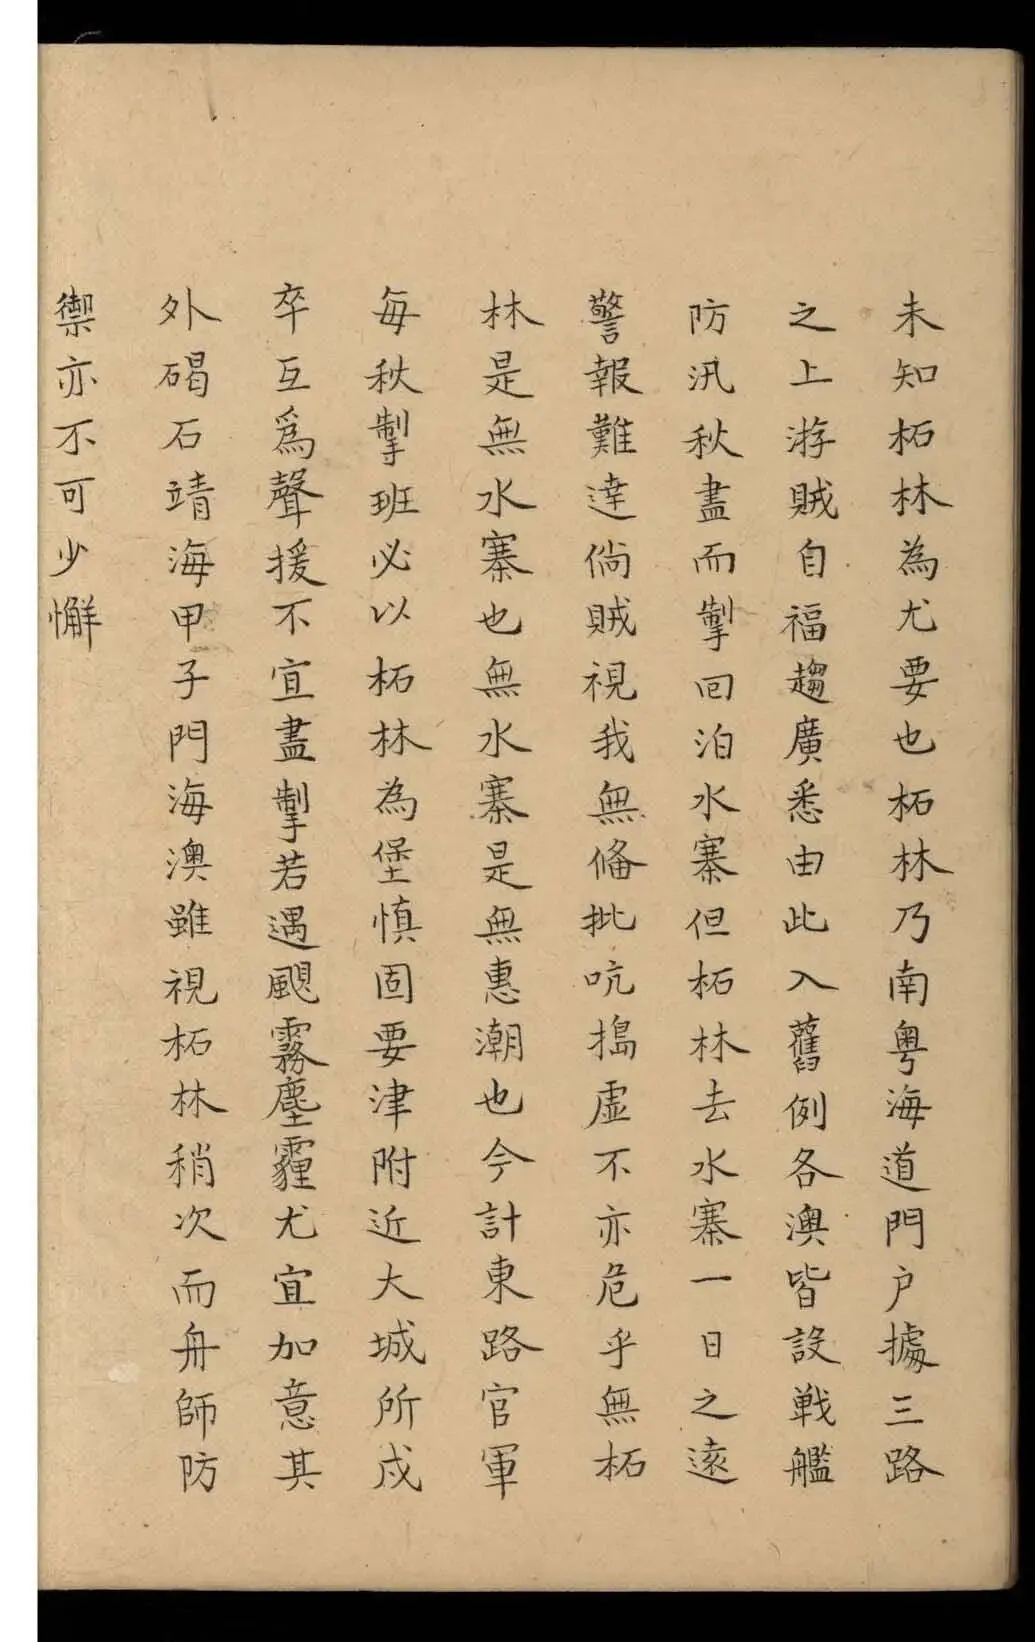 未知柘林為尤要也柘林乃南粤海道門戶據三路
之上游賊自福趨廣悉由此入舊例各澳皆設戰艦
防汛秋盡而掣回泊水寨但柘林去水寨一日之遠
警報難達倘賊視我無備批吭搗虛不亦危乎無柘
林是無水寨也無水寨是無惠潮也今計東路官軍
每秋掣班必以柘林為堡慎固要津附近大城所戍
卒互爲聲援不宜盡掣若遇颶霧塵霾尤宜加意其
外碣石靖海甲子門海澳雖視柘林稍次而舟師防
禦亦不可少懈